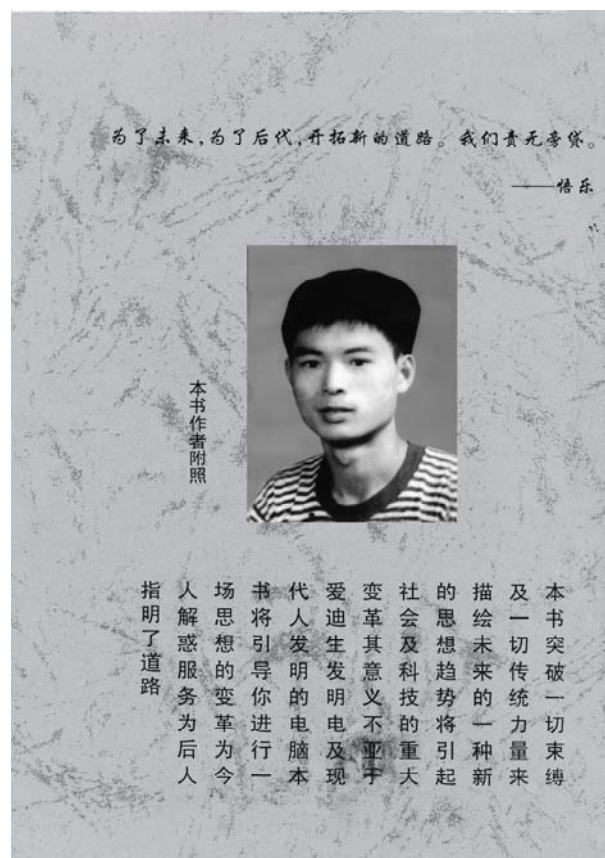 为了未来,为了后代,开拓新的道路。我们责无旁贷。
——悟乐
本书作者附照
本书突破一切束缚
及一切传统力量来
描绘未来的一种新
的思想趋势将引起
社会及科技的重大
变革其意义不亚于
爱迪生发明电及现
代人发明的电脑本
书将引导你进行一
场思想的变革为今
人解惑服务为后人
指明了道路